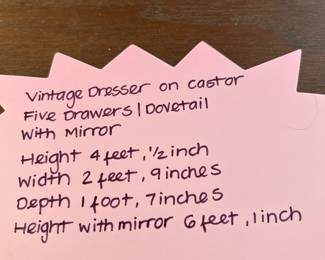 Vintage Dresser on castor
Five Drawers | Dovetail
With Mirror
Height 4 feet, 1/2 inch
Width 2 feet, 9 inches
Depth 1 foot, 7 inches
Height with mirror 6 feet, 1 inch